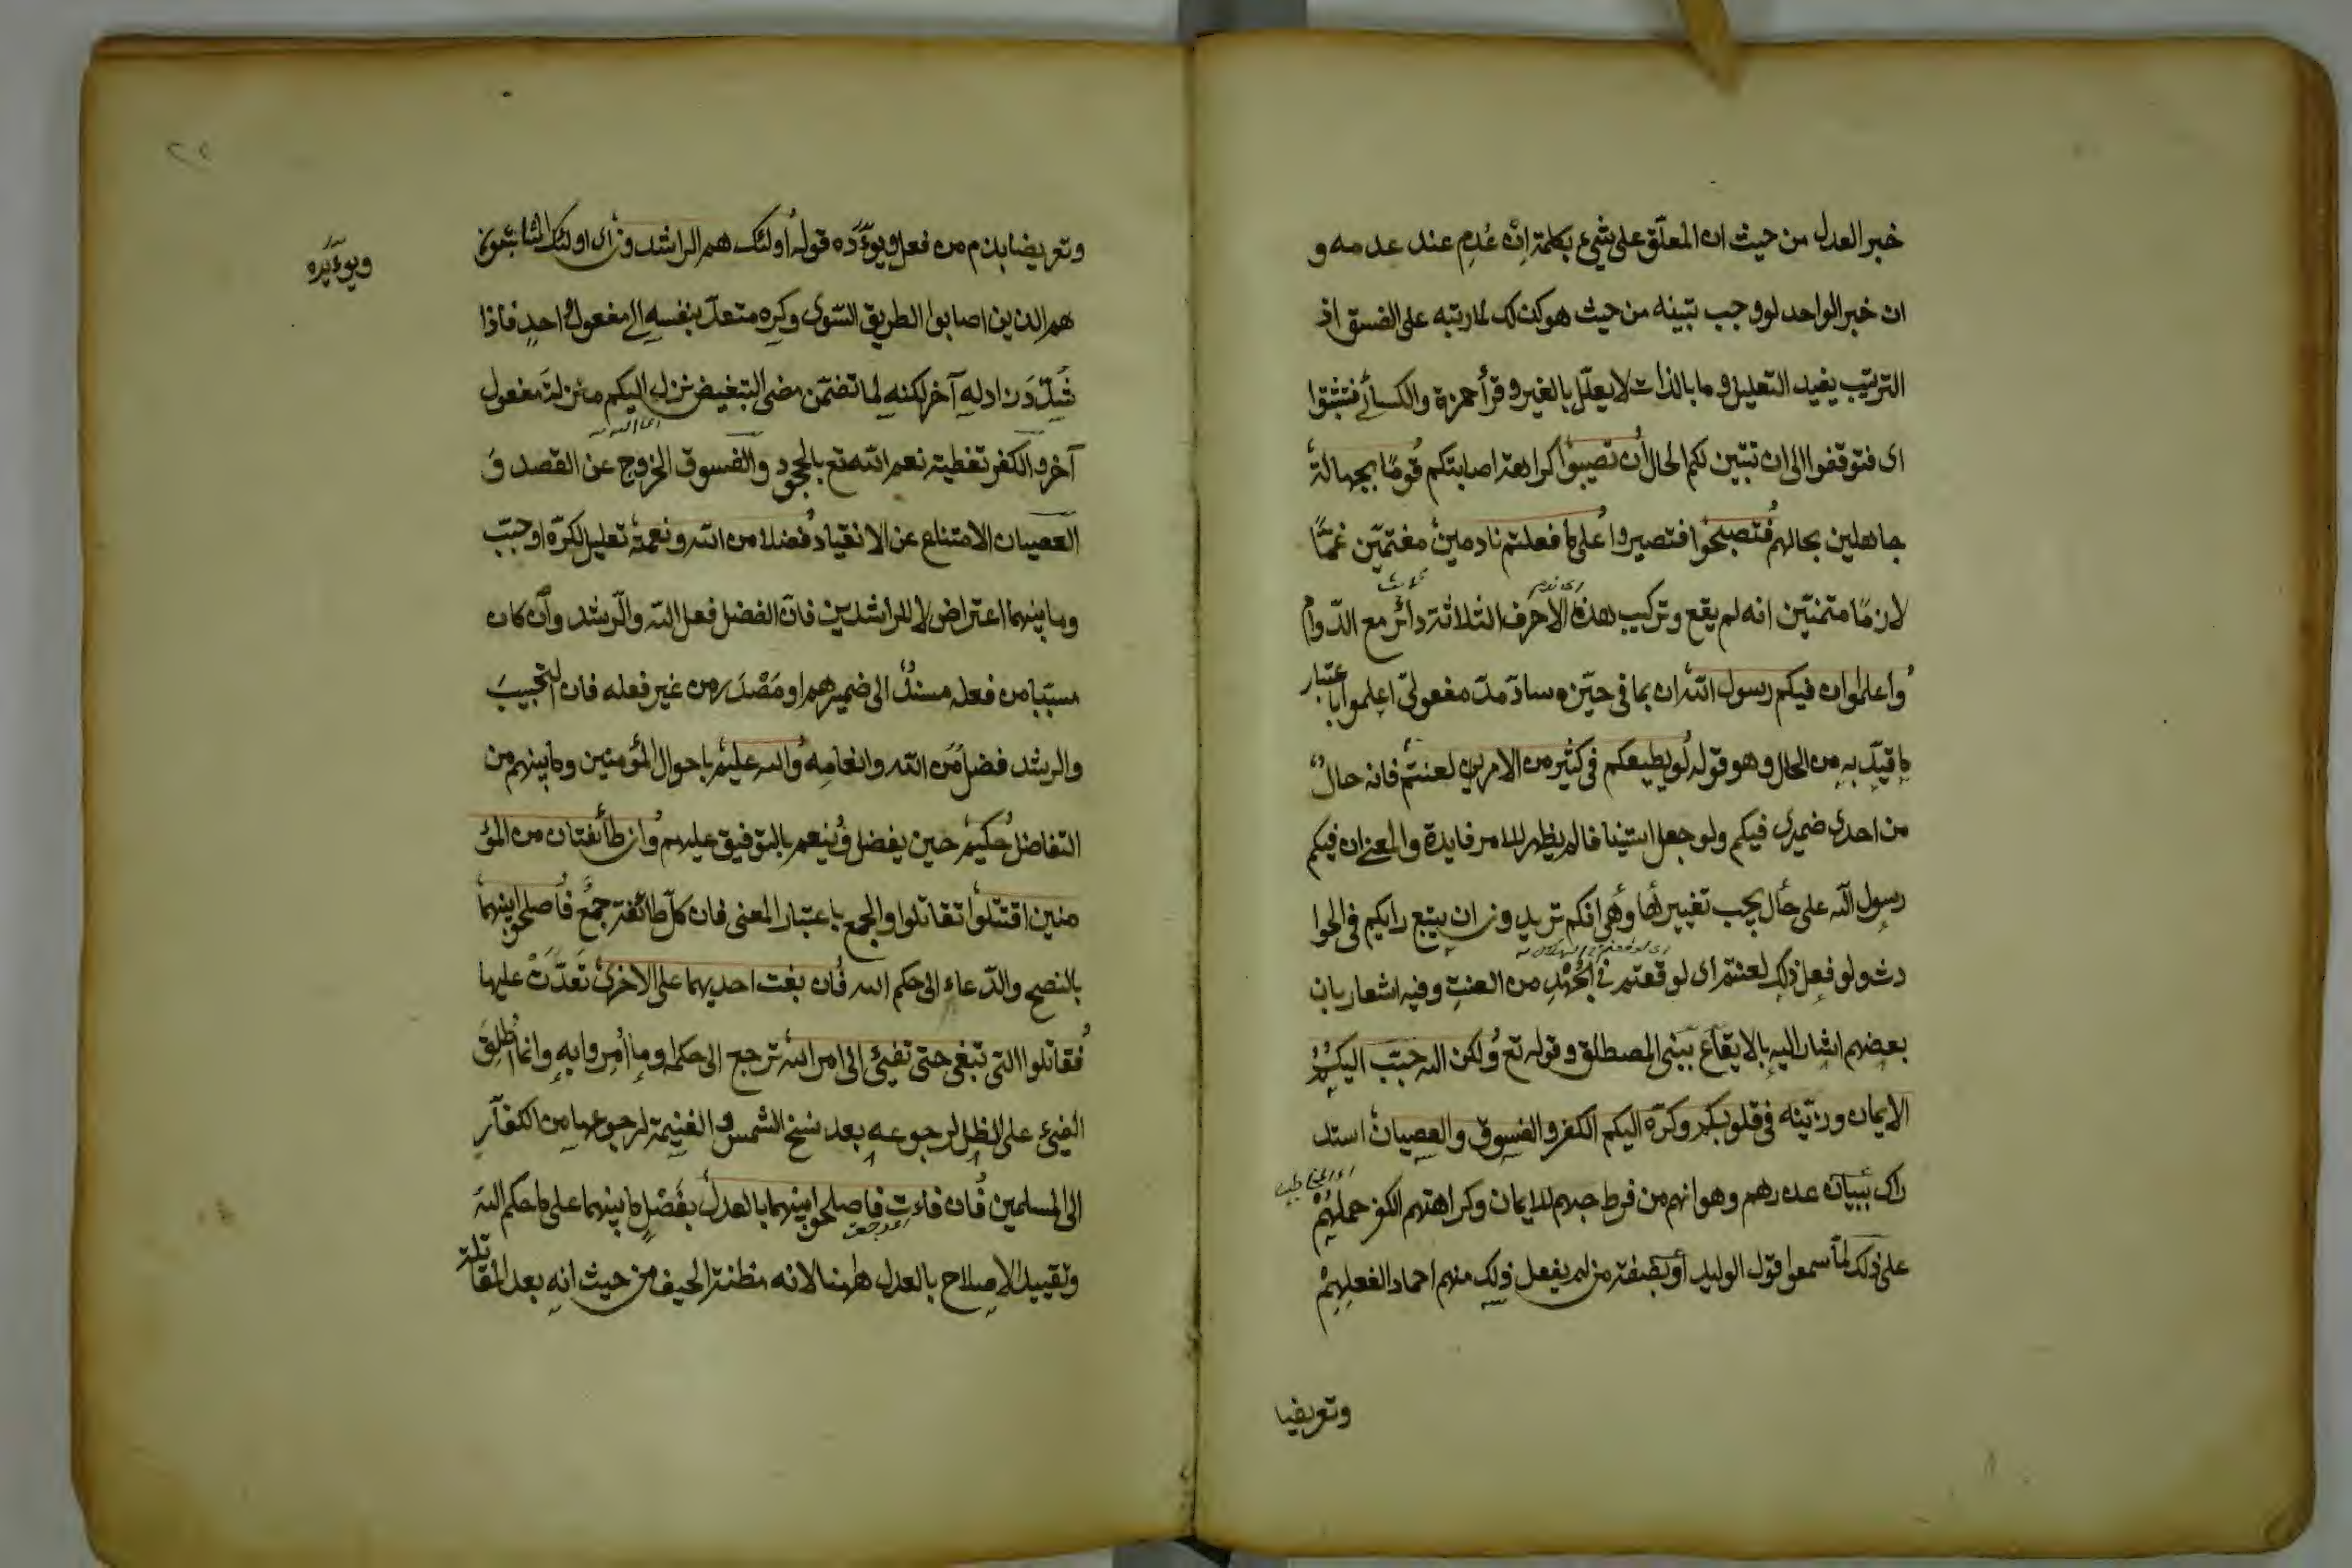 خبر العدل من حيث ان المعلّق على شيء بكلمة اِنْ عُدِم عند عدمه و
ان خبر الواحد لو وجب تبينه من حيث هو كذلك لما رتبه على الفسق اذ
الترتيب يفيد التعليل وما بالذات لا يعلّل بالغير وقرأ حمزة والكسائي فتثبتوا
اى فتوقفوا الى ان تتبين لكم الحال أن تصيبوا كراهة اصابتكم قومًا بجهالة
جاهلين بحالهم فتصبحوا فتصيروا على ما فعلتم نادمين مغتمّين غمًّا
لازمًا متمنّين انه لم يقع وتركيب هذه الاحرف الثلاثة دائر مع الدّوام
واعلموا ان فيكم رسول الله ان بما في حيّزه سادّ مدّ مفعوليّ اعلموا باعتبار
ما قيّد به من الحال وهو قوله لو يطيعكم في كثير من الامر لعنتم فانه حالٌ
من احدى ضميرى فيكم ولو جعل استينافا لم يظهر للامر فايدة والمعنى ان فيكم
رسول الله على حال يجب تغييرها وهى انكم تريدون ان يتبع رايكم فى الحوا
دث ولو فعل ذلك لعنتم اى لوقعتم فى الجُهْدِ من العنت وفيه اشعار بان
بعضهم اشار اليه بالايقاع ببنى المصطلق وقوله تع ولكن الله حبّب اليكم
الايمان وزيّنه فى قلوبكم وكرّه اليكم الكفر والفسوق والعصيان استد
راك ببيان عذرهم وهو انهم من فرط حبهم للايمان وكراهتهم الكفر حملهُمْ
على ذلك لما سمعوا قول الوليد أو بصفة من لم يفعل ذلك منهم احمادا لفعلهِمْ
وتعريضا
وتعريضا بذم من فعل ويوءَدّه قوله أولئك هم الراشدون اى اولئك المثابتون
هم الذين اصابوا الطريق السّوى وكره متعدّ بنفسه الى مفعول واحدٍ فاذا
شَدِّدَ زاد له آخر لكنه لما تضمّن معنى التبغيض نزل اليكم منزلة مفعول
آخر والكفر تغطية نعم الله تع بالجحود والفسوق الخروج عن القصد و
العصيان الامتناع عن الانقياد فضلا من الله ونعمة تعليل لكرّه او حبّب
وما بينهما اعتراض لا للراشدين فانّ الفضل فعل الله والرشد وان كان
مسبّبا من فعله مسندٌ الى ضميرهم او مَصْدَر من غير فعله فان التحبيبَ
والرشد فضل من الله وانعامه والله عليم باحوال المؤمنين وما بينهم من
التفاضل حكيم حين يفضل ويُنعم بالتوفيق عليهم وان طائفتان من المؤ
منين اقتتلوا تقاتلوا والجمع باعتبار المعنى فان كلّ طائفة جمعٌ فأصلحوا بينهما
بالنصح والدّعاء الى حكم الله فان بغت احديهما على الاخرى تَعَدَّتْ عليها
فقاتلوا التى تبغى حتى تفيئ الى امر الله ترجع الى حكمه وما اُمِروا به وانما اُطلِقَ
الفيئ على الظل لرجوعه بعد نسخ الشمس والغنيمة لرجوعها من الكفّار
الى المسلمين فان فاءت فاصلحوا بينهما بالعدل بِفَصْلِ ما بينهما على ما حكم الله
وتقييد الاصلاح بالعدل ههنا لانه مظنة الحيف من حيث انه بعد المقاتلة
ويوءَيّده